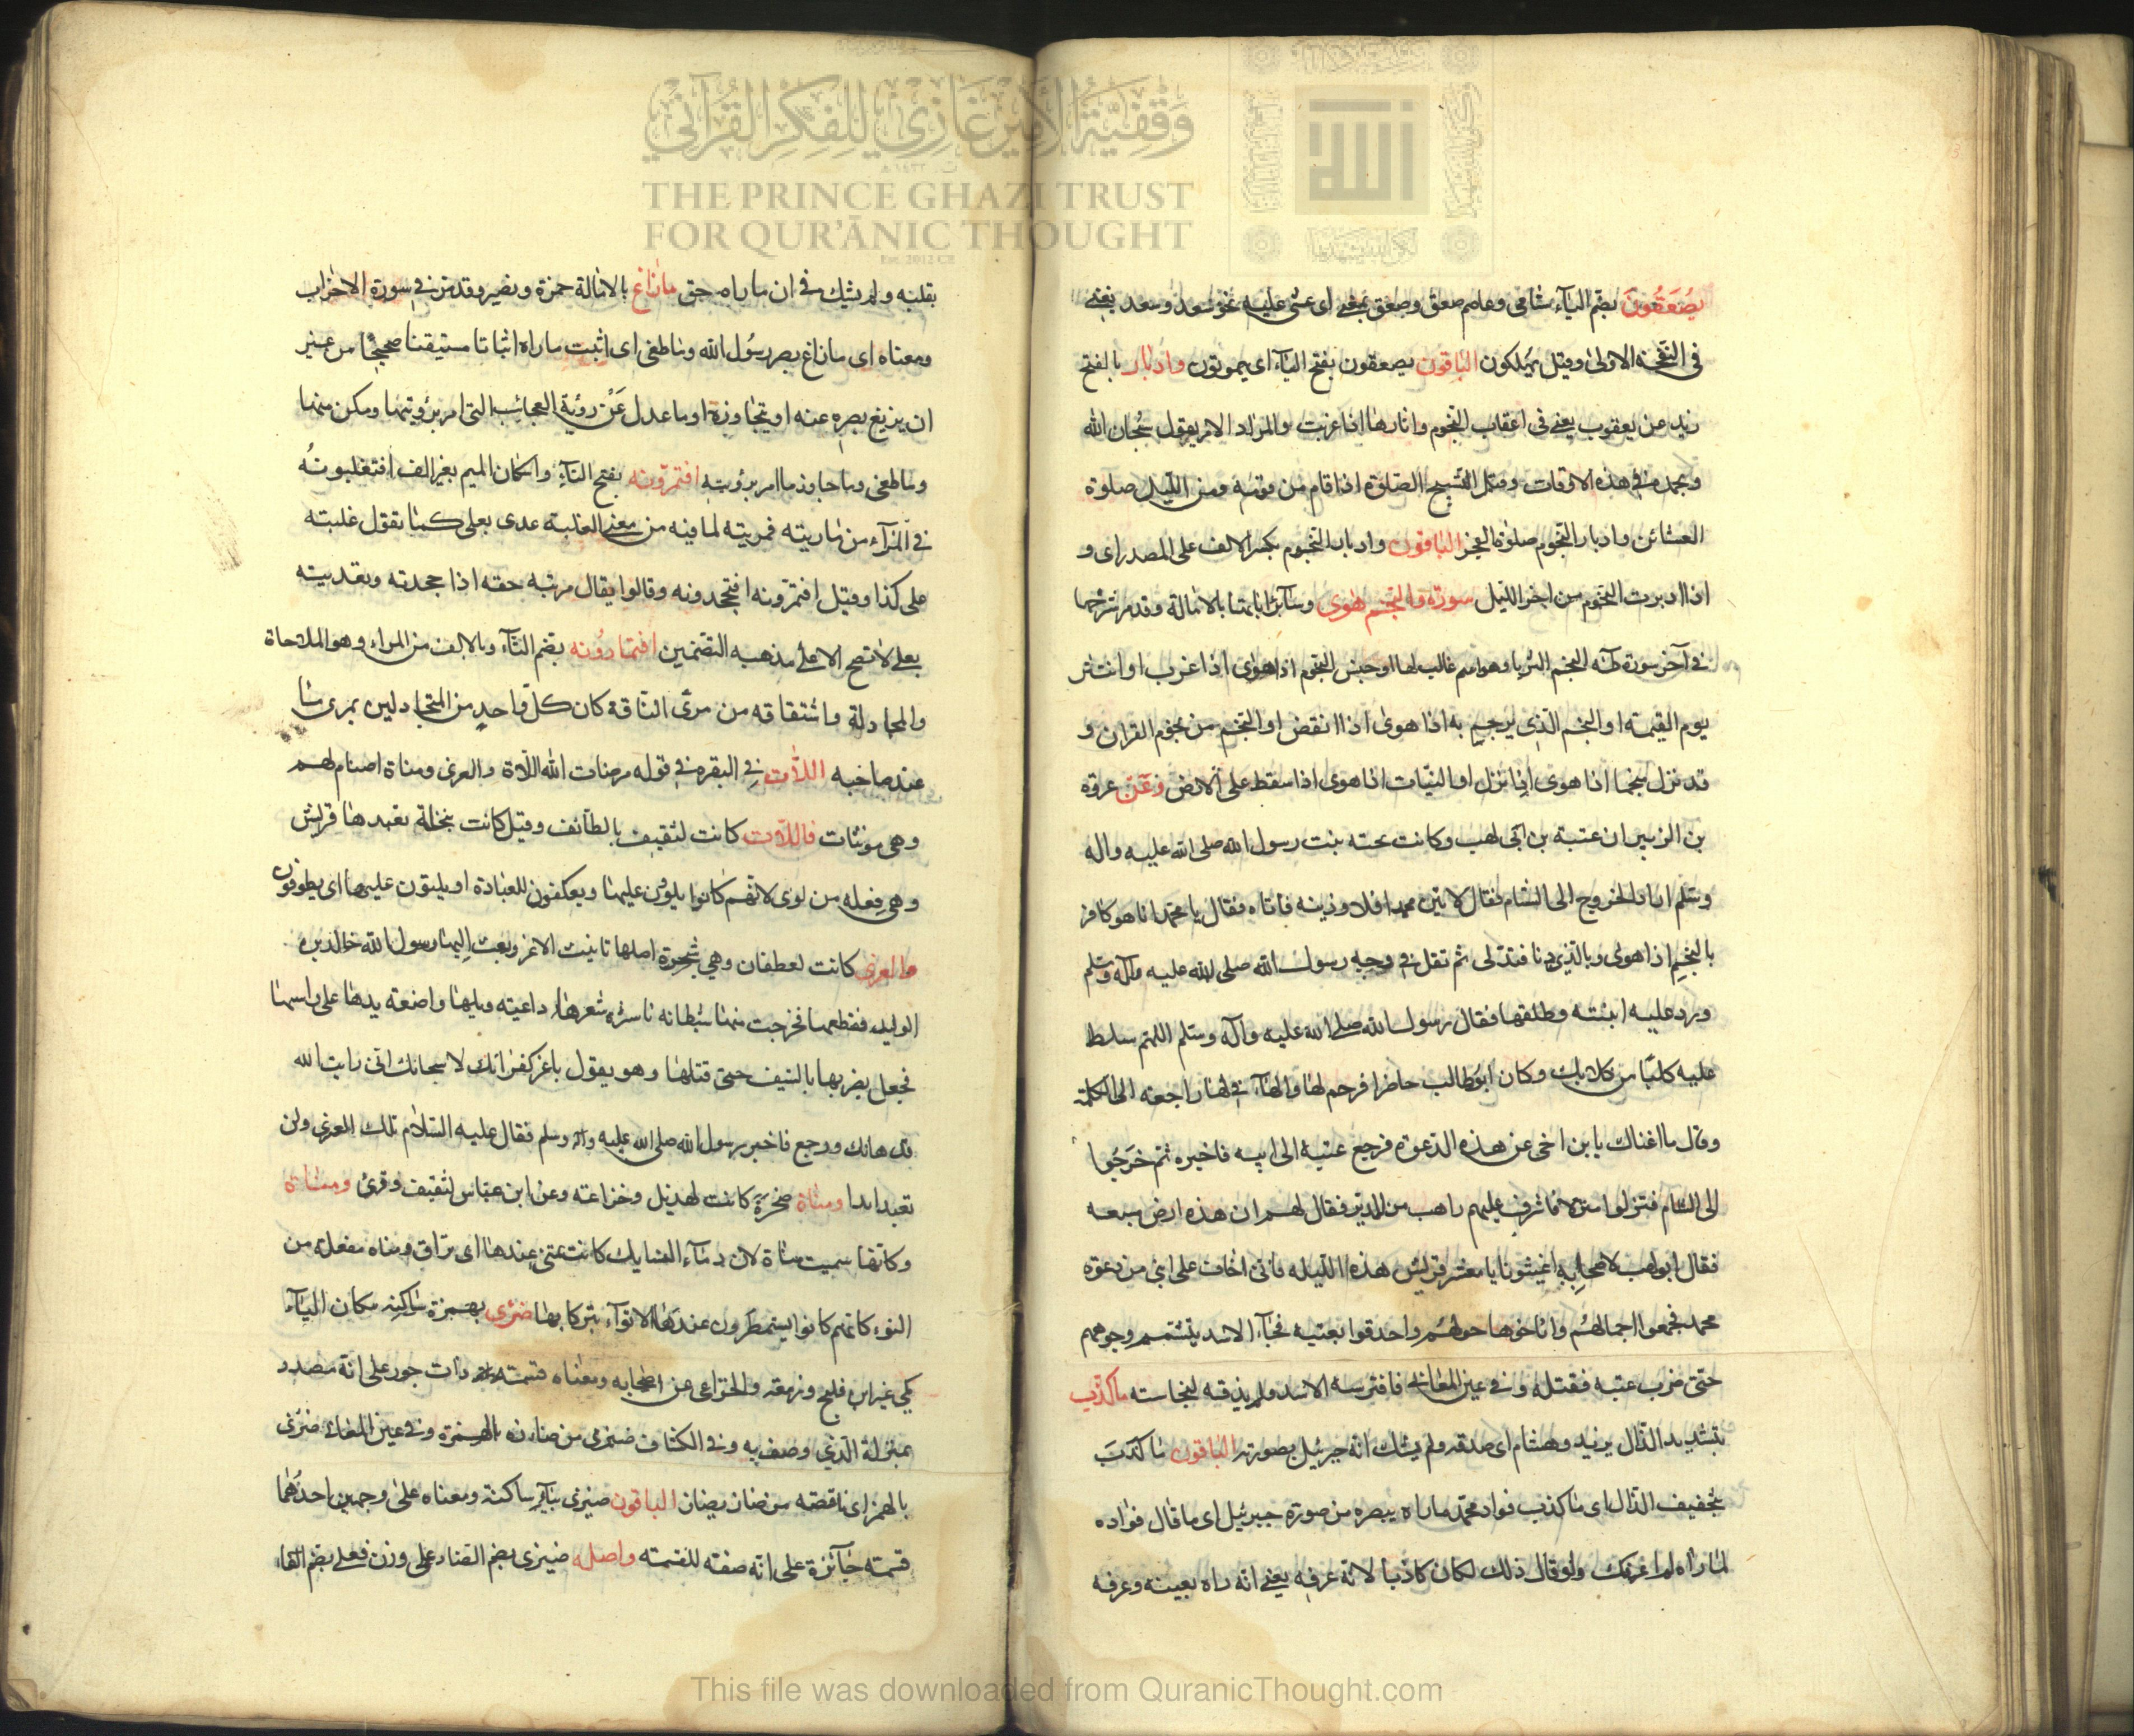 وقفية الأمير غازي للفكر القرآني
THE PRINCE GHAZI TRUST
FOR QUR'ĀNIC THOUGHT
Est. 2012 CE
يُصْعَقُونَ بضم الياء شامى وعاصم صعق وصعق بمعنى اى غشى عليه نحو سُعد وسعد يعنى
فى النفخة الاولى وقيل يهلكون الباقون يصعقون بفتح الياء اى يموتون وادبار بالفتح
زيد عن يعقوب يعنى فى اعقاب النجوم واثارها اذا غربت والمراد الامر بقول سبحان الله
وبحمده فى هذه الاوقات وقيل التسبيح الصلوة اذا قام من نومه ومن الليل صلوة
العشائن وادبار النجوم صلوة الفجر الباقون وادبار النجوم بكسر الالف على المصدر اى و
اذا ادبرت النجوم من اخر الليل سورة والنجم هوى وسائر اياتها بالامالة وقد مر شرحها
فى آخر سورة طه النجم الثريا وهو اسم غالب لها او جنس النجوم اذا هوى اذا غرب او انتثر
يوم القيمة او النجم الذى يرجم به اذا هوى اذا انقض او النجم من نجوم القران و
قد نزل نجما اذا هوى اذا نزل او النبات اذا هوى اذا سقط على الارض وعن عروة
بن الزبير ان عتبة بن ابى لهب وكانت تحته بنت رسول الله صلى الله عليه واله
وسلم اراد الخروج الى الشام فقال لاتين محمدا فلاوذينه فاتاه فقال يا محمد انا هو كافر
بالنجم اذا هوى وبالذى دنا فتدلى ثم تفل فى وجه رسول الله صلى الله عليه وآله وسلم
ورد عليه ابنته وطلقها فقال رسول الله صلى الله عليه وآله وسلم اللهم سلط
عليه كلبا من كلابك وكان ابوطالب حاضرا فرحم لها والهاء فى لها راجعة الى الكلمة
وقال ما اغناك يا بن اخى عن هذه الدعوة فرجع عتبة الى ابيه فاخبره ثم خرجوا
الى الشام فنزلوا منزلا فاشرف عليهم راهب من الدير فقال لهم ان هذه ارض مسبعه
فقال ابولهب لاصحابه اغيثونا يا معشر قريش هذه الليله فانى اخاف على ابنى من دعوة
محمد فجمعوا اجمالهم واناخوها حولهم واحدقوا بعتبه فجاء الاسد يتشمم وجوههم
حتى ضرب عتبه فقتله وفى عين المعانى فافترسه الاسد ولم يذقه لنجاسته ماكذّب
بتشديد الذال يزيد وهشام اى صدقه ولم يشك انه جبرئيل بصورته الباقون ماكذَبَ
بتخفيف الذال اى ماكذب فواد محمد ماراه ببصره من صورة جبرئيل اى ما قال فواده
لما راه لم اعرفك ولو قال ذلك لكان كاذبا لانه عرفه يعنى انه راه بعينه وعرفه
بقلبه ولم يشك فى ان ماراه حق مازاغ بالامالة حمزة ونصير وقد مر فى سورة الاحزاب
ومعناه اى مازاغ بصر رسول الله وماطغى اى اثبت ماراه اثباتا مستيقنا صحيحا من غير
ان يزيغ بصره عنه او يتجاوزه او ماعدل عَنْ رؤية العجائب التى امر برؤيتها ومكن منها
وماطغى وماجاوز ما امر برؤيته افتمرونه بفتح التاء واسكان الميم بغير الف افتغلبونه
فى المراء من ماريته فمريته لما فيه من معنى الغلبة عدى بعلى كما تقول غلبته
على كذا وقيل افتمرونه افتجحدونه وقالوا يقال مريته حقه اذا جحدته وتعديته
بعلى لاتصح الا على مذهب التضمين افتمارونه بضم التاء وبالالف من المراء وهو الملاحاة
والمجادلة واشتقاقه من مرى الناقة كان كل واحد من المتجادلين يمرى ما
عند صاحبه اللات فى البقره فى قوله مرضات الله اللاة والعزى ومناة اصنام لهم
وهى مونثات فاللات كانت لثقيف بالطائف وقيل كانت بنخلة تعبدها قريش
وهى فعله من لوى لانهم كانوا يلوون عليها ويعكفون للعبادة او يلتوون عليها اى يطوفون
والعزى كانت لغطفان وهى شجرة اصلها تانيث الاعز وبعث اليها رسول الله خالد بن
الوليد فقطعها فخرجت منها شيطانه ناشرة شعرها داعية ويلها واضعة يدها على راسها
فجعل يضربها بالسيف حتى قتلها وهو يقول ياعز كفرانك لا سبحانك انى رايت الله
قد هانك ورجع فاخبر رسول الله صلى الله عليه وآله وسلم فقال عليه السلام تلك العزى ولن
تعبد ابدا ومناة صخرة كانت لهذيل وخزاعة وعن ابن عباس لثقيف وقرئ ومناءة
وكانها سميت مناة لان دماء النسايك كانت تمنى عندها اى تراق ومناه مفعلة من
النوء كانهم كانوا يستمطرون عندها الانواء تبركا بها ضئزى بهمزة ساكنه مكان الياء
مكى غير ابن فليح وزمعة والخزاعى عن اصحابه ومعناه قسمة ذات جور على انه مصدر
بمنزلة الذى وصف به وفى الكشاف ضئزى من ضازه بالهمزة وفى عين المعانى ضئزى
بالهمز اى ناقصة من ضاز يضاز الباقون ضيزى بياء ساكنة ومعناه على وجهين احدهما
قسمة جائرة على انه صفة للقسمة واصله ضيزى بضم الضاد على وزن فعلى بضم الفاء
This file was downloaded from QuranicThought.com